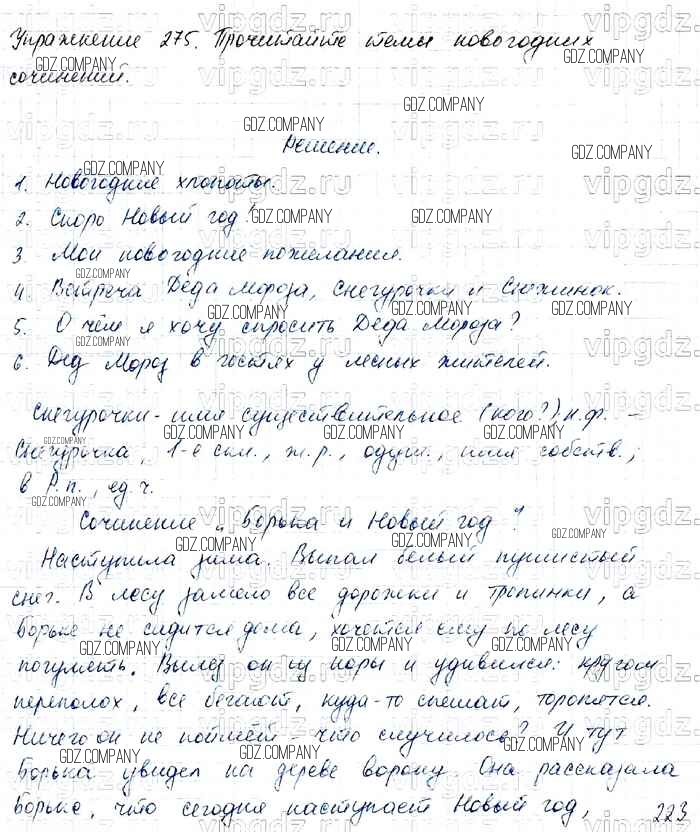 Упражнение 275. Прочитайте темы новогодних
сочинений.
Решение.
1. Новогодние хлопоты.
2. Скоро Новый год!
3. Мои новогодние пожелания.
4. Встреча Деда Мороза, Снегурочки и Снежинок.
5. О чём я хочу спросить Деда Мороза?
6. Дед Мороз в гостях у лесных жителей.
Снегурочки - имя существительное (кого?) н.ф. -
Снегурочка, 1-е скл., ж.р., одуш., имя собств.,
в Р.п., ед.ч.
Сочинение „Борька и Новый год"
Наступила зима. Выпал белый пушистый
снег. В лесу замело все дорожки и тропинки, а
Борьке не сидится дома, хочется ему по лесу
погулять. Вылез он из норы и удивился: кругом
переполох, все бегают, куда-то спешат, торопятся.
Ничего он не поймёт - что случилось? И тут
Борька увидел на дереве ворону. Она рассказала
Борьке, что сегодня наступает Новый год,
223